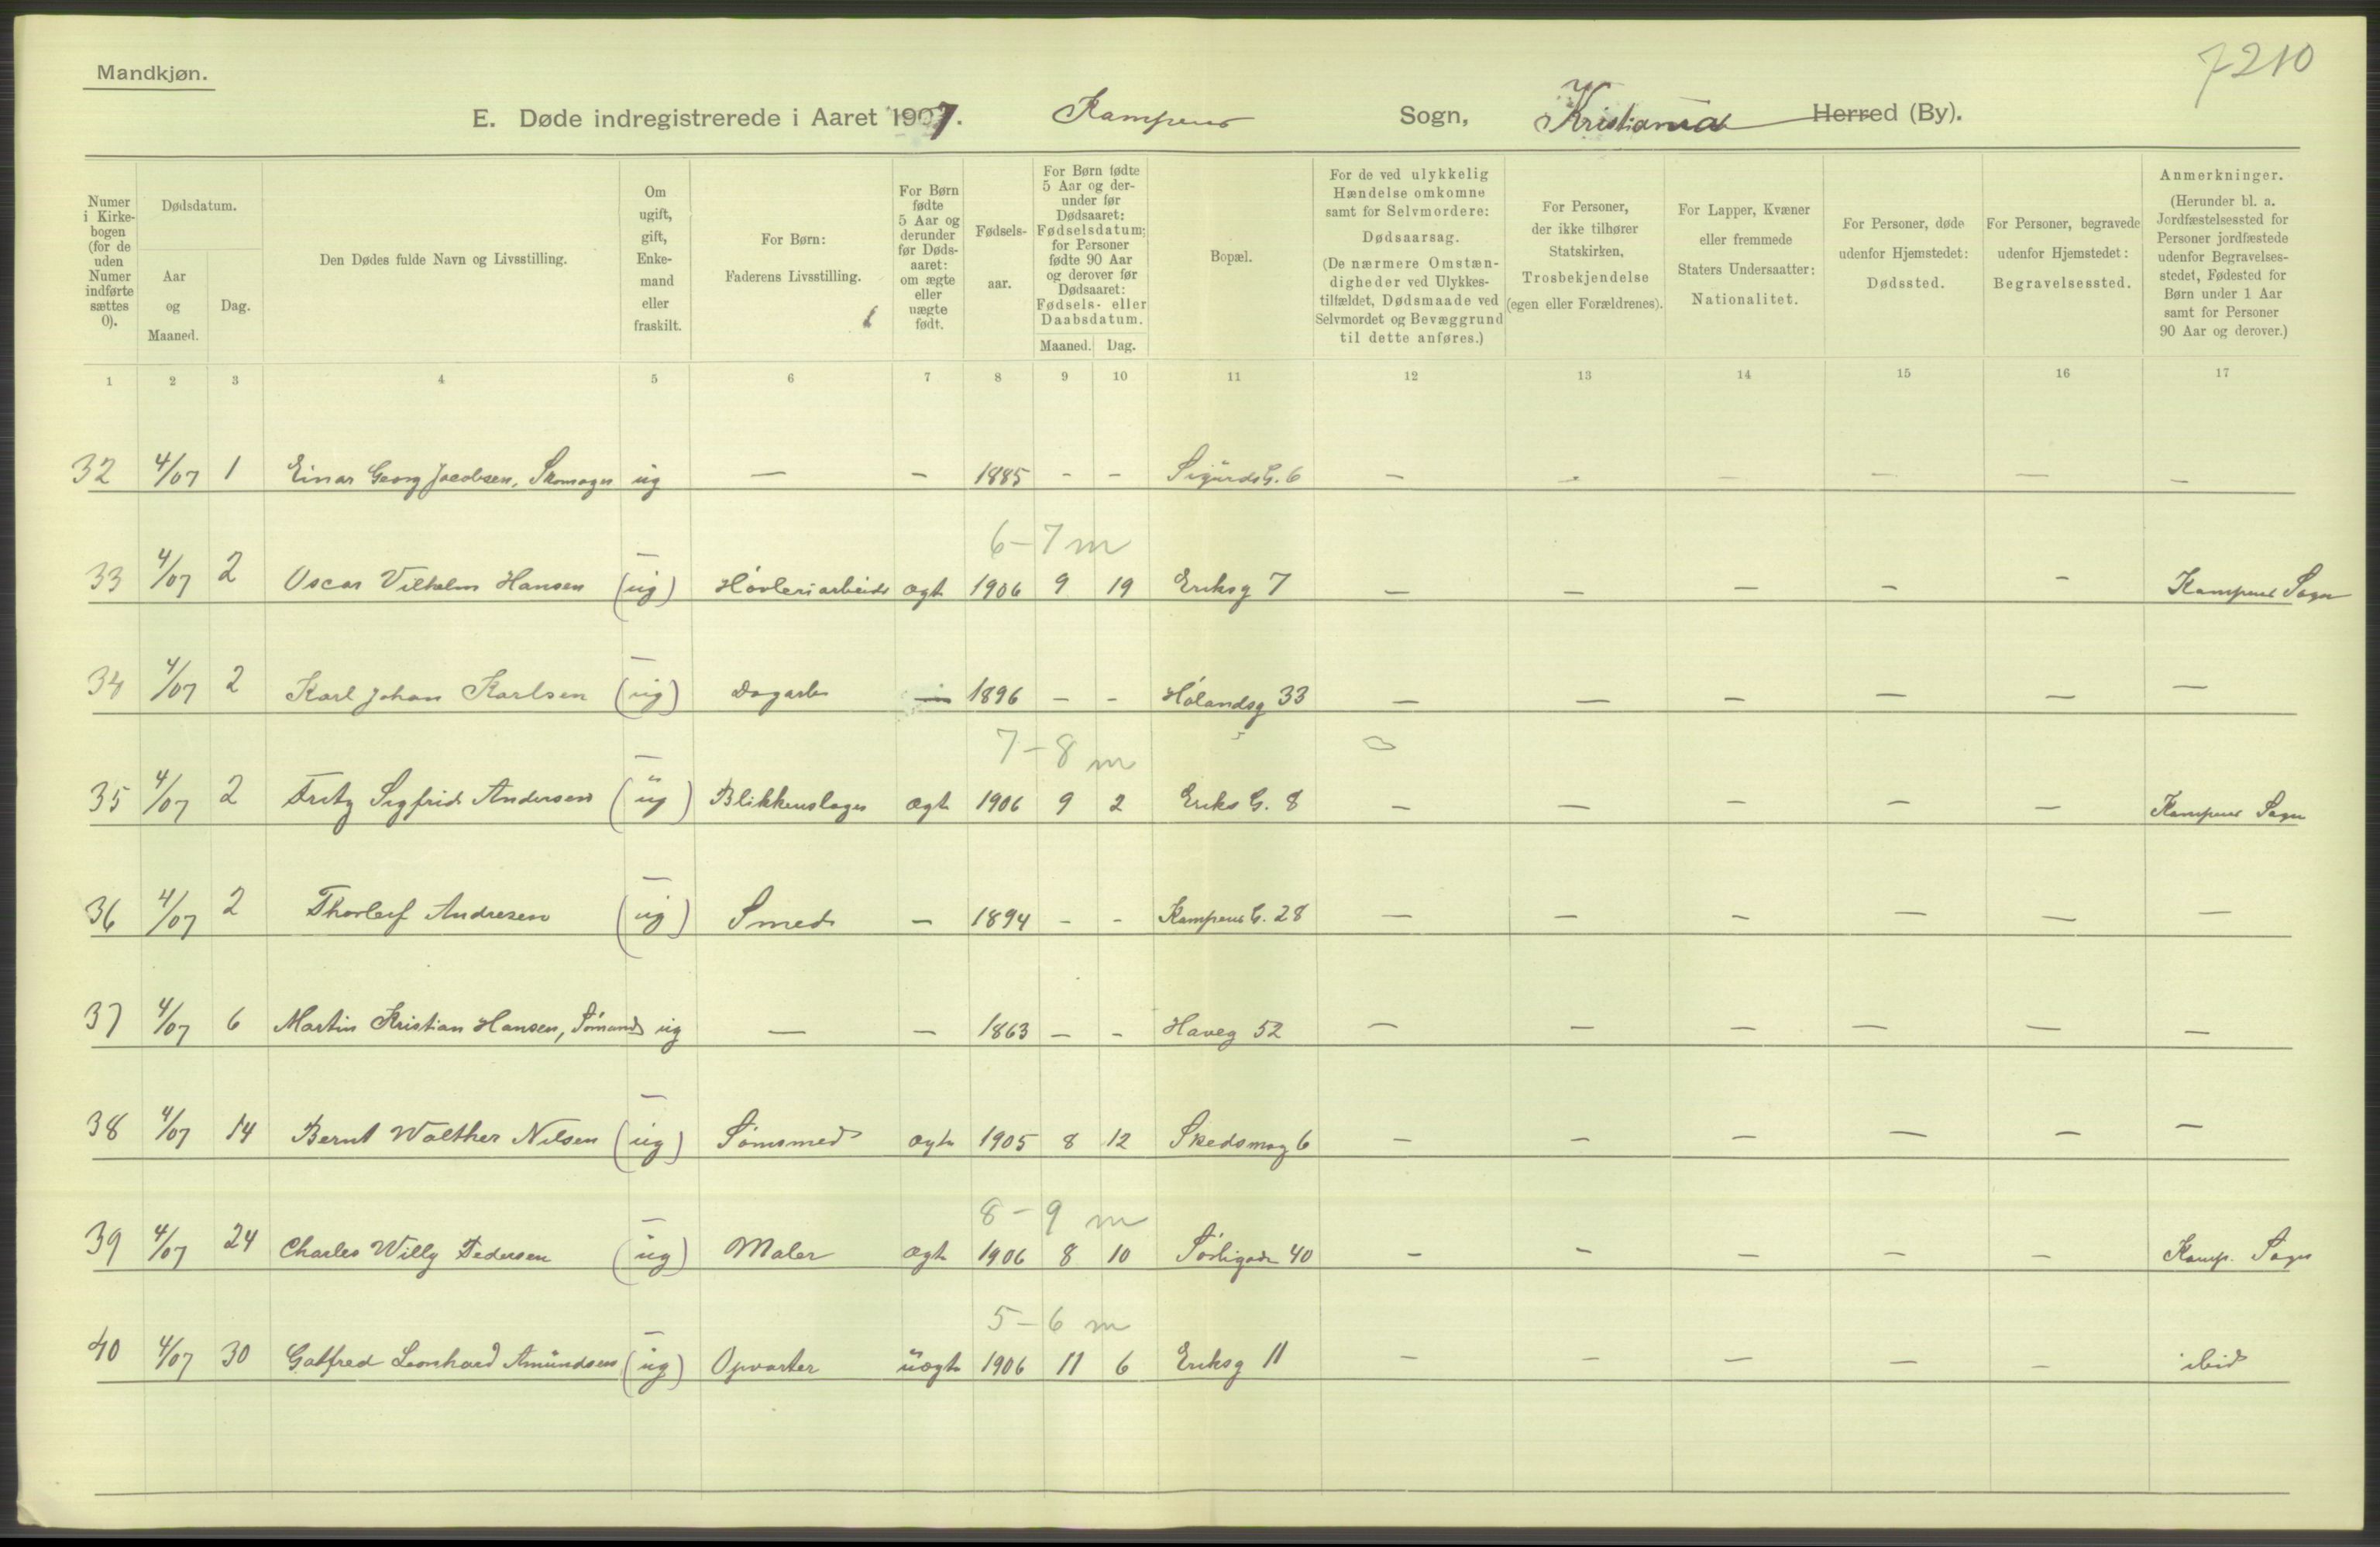 7210
Mandkjøn.
E. Døde indregistrerede i Aaret 1907. Kampens Sogn, Kristiania Herred (By).
Numer i Kirke-bogen (for de uden Numer indførte sættes 0).
Dødsdatum.
Aar og Maaned.
Dag.
Den Dødes fulde Navn og Livsstilling.
Om ugift, gift, Enke-mand eller fraskilt.
For Børn: Faderens Livsstilling.
For Børn fødte 5 Aar og derunder før Døds-aaret: om ægte eller uægte født.
Fødsels-aar.
For Børn fødte 5 Aar og der-under før Dødsaaret: Fødselsdatum; for Personer fødte 90 Aar og derover før Dødsaaret: Fødsels- eller Daabsdatum.
Maaned. Dag.
Bopæl.
For de ved ulykkelig Hændelse omkomne samt for Selvmordere: Dødsaarsag. (De nærmere Omstæn-digheder ved Ulykkes-tilfældet, Dødsmaade ved Selvmordet og Bevæggrund til dette anføres.)
For Personer, der ikke tilhører Statskirken, Trosbekjendelse (egen eller Forældrenes).
For Lapper, Kvæner eller fremmede Staters Undersaatter: Nationalitet.
For Personer, døde udenfor Hjemstedet: Dødssted.
For Personer, begravede udenfor Hjemstedet: Begravelsessted.
Anmerkninger. (Herunder bl. a. Jordfæstelsessted for Personer jordfæstede udenfor Begravelses-stedet, Fødested for Børn under 1 Aar samt for Personer 90 Aar og derover.)
1 2 3 4 5 6 7 8 9 10 11 12 13 14 15 16 17
32 4/07 1 Einar Georg Jacobsen, Skomager ug — — 1885 - - Sigurds G. 6 — — — — — —
6-7 m
33 4/07 2 Oscar Vilhelm Hansen (ug) Høvleriarbeid ægte 1906 9 19 Eriksg 7 — — — — — Kampens Sogn
34 4/07 2 Karl Johan Karlsen (ug) Dagarb — 1896 - - Hølandsg 33 — — — — — —
7-8 m
35 4/07 2 Fritz Sigfrid Andersen (ug) Blikkenslager ægte 1906 9 2 Eriks G. 8 — — — — — Kampens Sogn
36 4/07 2 Thorleif Andresen (ug) Smed — 1894 - - Kampens G. 28 — — — — — —
37 4/07 6 Martin Kristian Hansen, Sømand ug — — 1863 - - Haveg 52 — — — — — —
38 4/07 14 Bernt Walther Nilsen (ug) Sømsmed ægte 1905 8 12 Skedsmog 6 — — — — — —
8-9 m
39 4/07 24 Charles Willy Pedersen (ug) Maler ægte 1906 8 10 Sørligade 40 — — — — — Kamp. Sogn
5-6 m
40 4/07 30 Gotfred Leonhard Amundsen (ug) Opvarter uægte 1906 11 6 Eriksg 11 — — — — — ibid